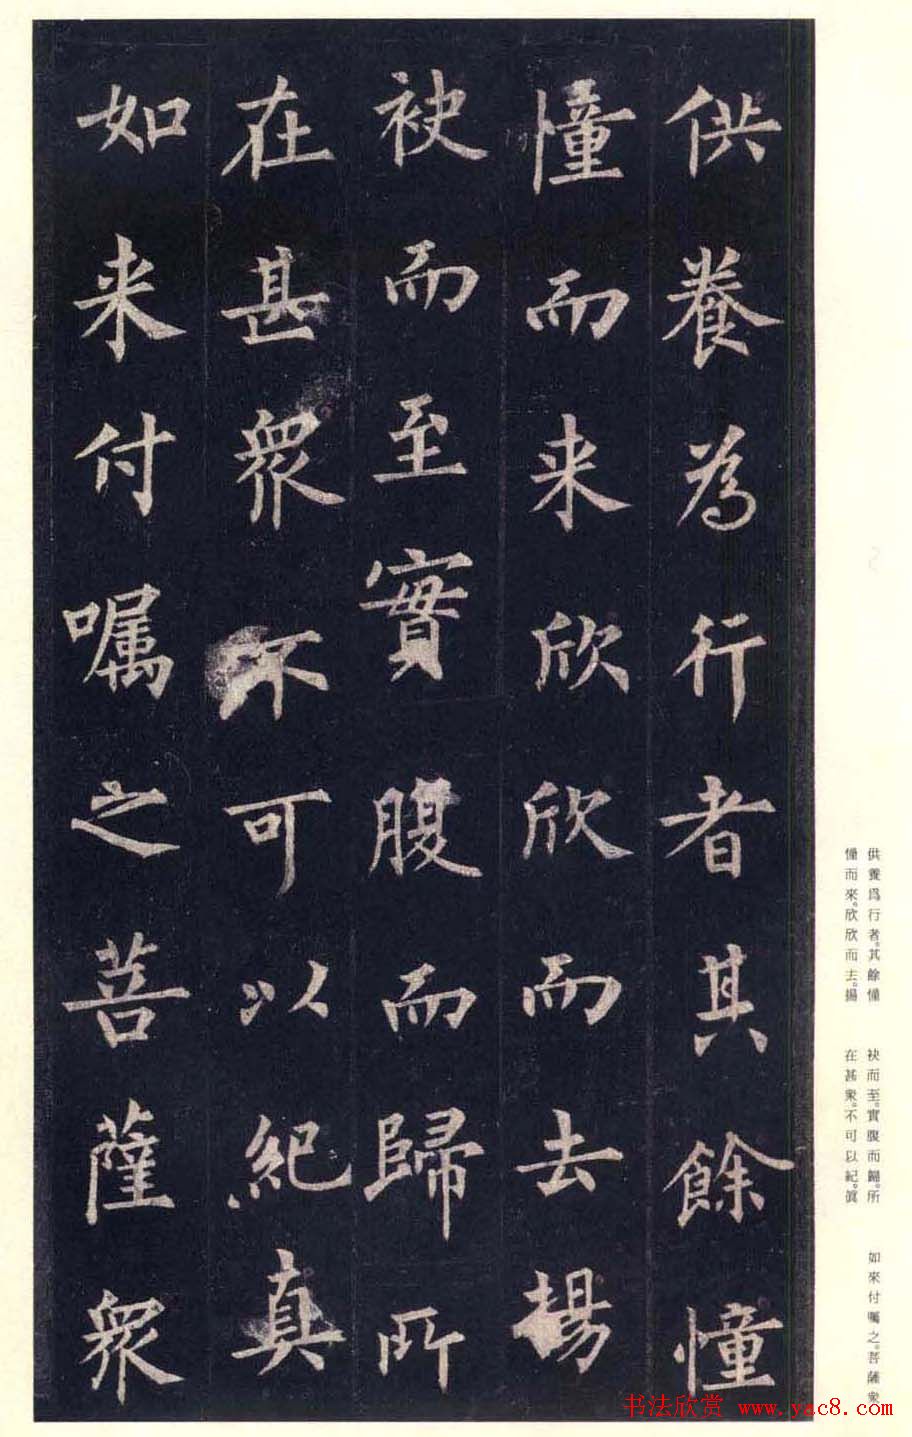 供養為行者其餘憧
憧而来欣欣而去揚
袂而至實腹而歸所
在甚衆不可以紀真
如来付嘱之菩薩衆
供養爲行者。其餘憧
憧而來。欣欣而去。揚
袂而至。實腹而歸。所
在甚衆。不可以紀。眞
如來付囑之。菩薩衆
书法欣赏 www.yac8.com